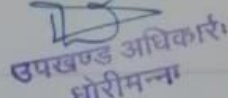 उपखण्ड अधिकारी
धोरीमन्ना